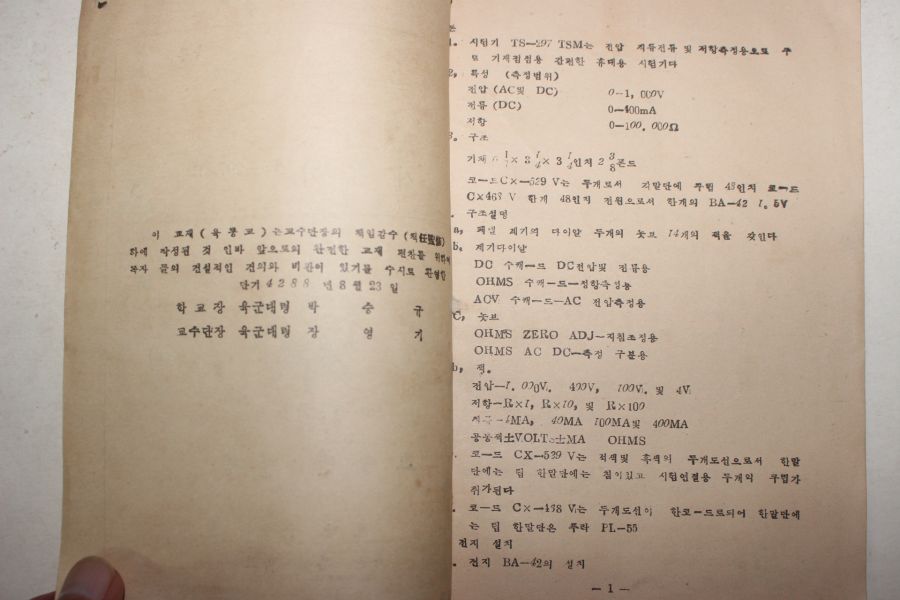 이 교재 (육통교)는교수단장의 책임감수 (責任監修)
하에 작성된 것 인바 앞으로의 완전한 교재 편찬을 위하여
독자 들의 건설적인 건의와 비판이 있기를 수시로 환영함
단기 4288 년 8월 23 일
학교장 육군대령 박 승 규
교수단장 육군대령 장 영 기
론
1. 시험기 TS—297 TSM는 전압 직류전류 및 저항측정용으로 주
로 기재점검용 간편한 휴대용 시험기다
2, 특성 (측정범위)
전압 (AC및 DC) 0—1, 000V
전류 (DC) 0—400mA
저항 0—100. 000Ω
3. 구조
기재 × 3 × 3 인치 2 3/8 폰드
코—드CX—539 V는 두개로서 각말단에 뿌럽 48인치 코—드
CX468 V 한개 48인치 전원으로서 한개의 BA—42 1. 5V
. 구조설명
a, 패넬 계기와 다이알 두개의 놋브 14개의 쨱을 갖인다
b. 계기다이알
DC 수케—드 DC전압및 전류용
OHMS 수케—드—정항측정용
ACV 수케—드—AC 전압측정용
C, 놋브
OHMS ZERO ADJ—지침조정용
OHMS AC DC—측정 구분용
b, 쨱.
전압—1. 000V. 400V, 100V. 및 4V
저항—R×1, R×10, 및 R×100
4MA, 40MA 100MA및 400MA
공통쨱±VOLTs±MA OHMS
. 코—드 CX—539 V는 적색및 흑색의 두개도선으로서 한말
단에는 팁 한말단에는 침이있고 시험연결용 두개의 뿌럽가
취가된다
. 코—드 CX—468 V는 두개도선이 한코—드로되어 한말단에
는 팁 한말단은 뿌락 PL—55
전지 설치
. 전지 BA—42의 설치
— 1 —